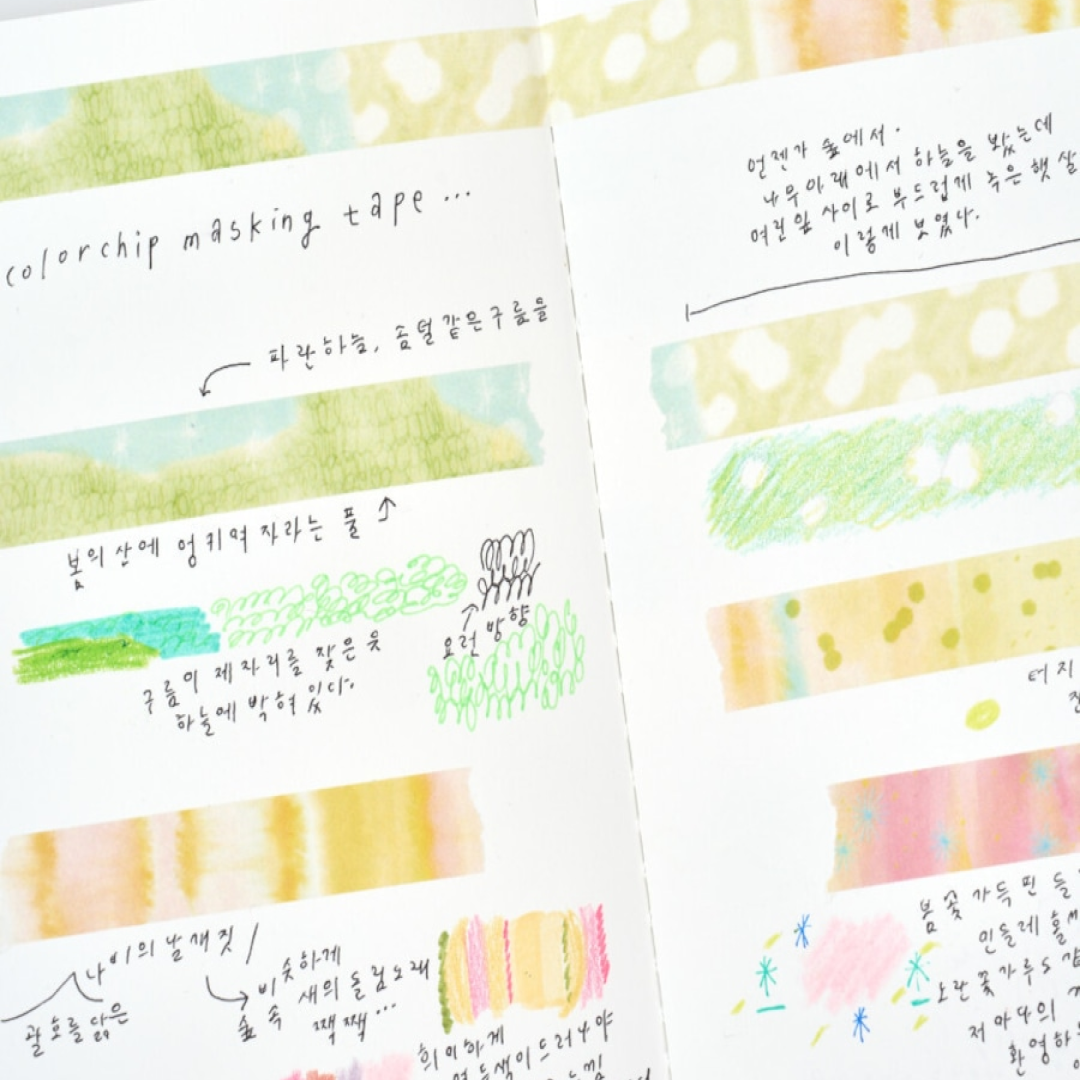 colorchip masking tape ...
파란하늘, 솜털같은구름을
봄의산에 엉키며 자라는 풀
요런 방향
구름이 제자리를 찾은 듯
하늘에 박혀 있다.
나비의 날개짓
괄호를 닮은
비슷하게
새의 울림노래
숲 속
짹짹...
희미하게
언젠가 숲에서.
나무아래에서 하늘을 봤는데
여린잎 사이로 부드럽게 녹은 햇살
이렇게 보였다.
터지
봄꽃 가득 핀 들
민들레 홀씨
노란꽃가루와
저마다의
환영하